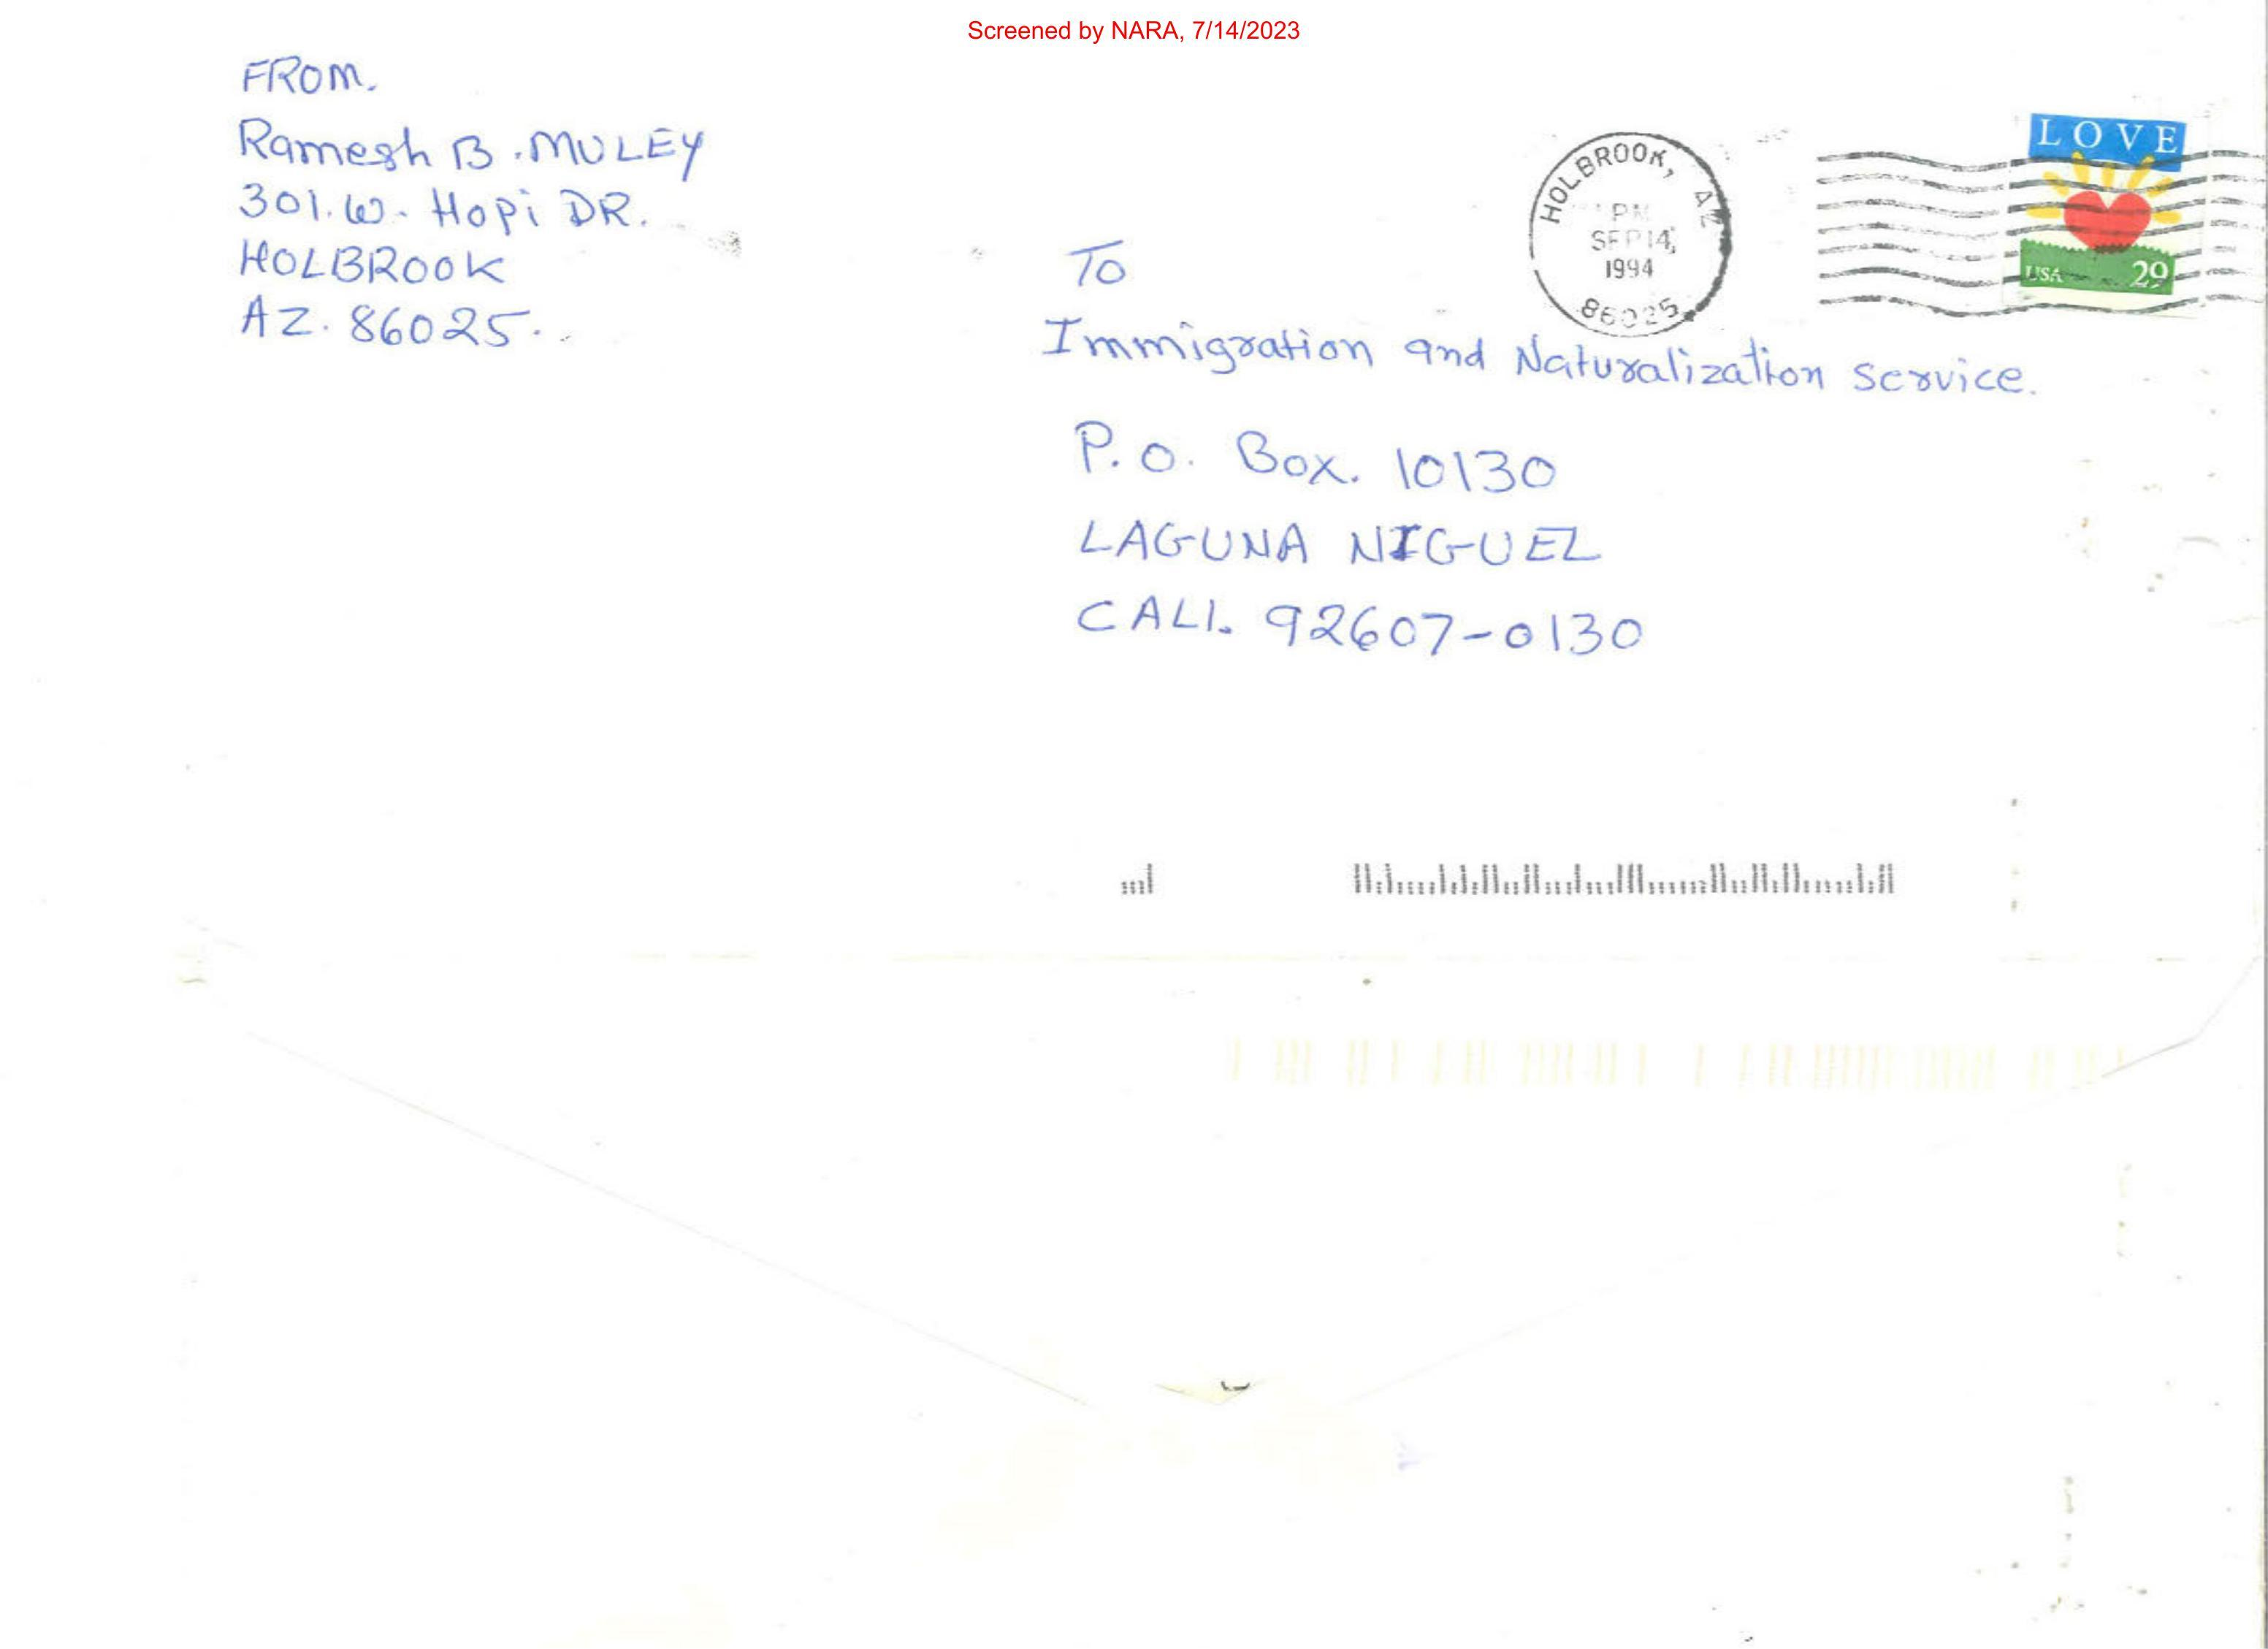 Screened by NARA, 7/14/2023
FROM.
Ramesh B. MULEY
301. W. Hopi DR.
HOLBROOK
AZ. 86025.
HOLBROOK, AZ
PM
SEP 14
1994
86025
LOVE
USA 29
To
Immigration and Naturalization Service.
P.O. Box. 10130
LAGUNA NIGUEL
CALI. 92607-0130